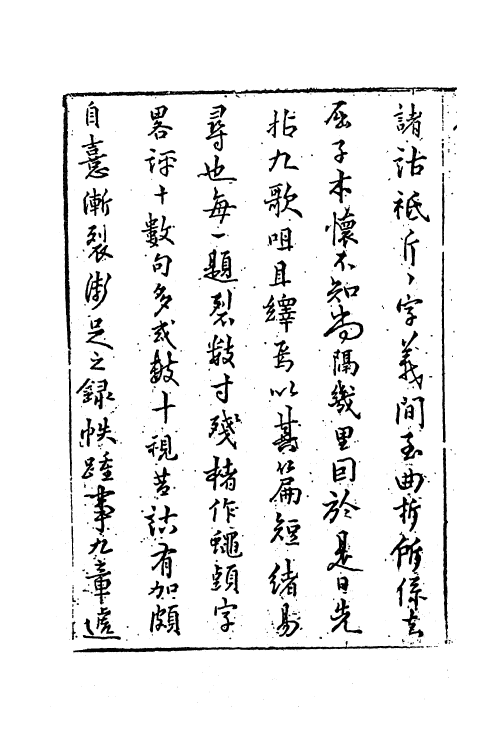 諸詁祗斤〻字義間至曲折所係去
屈子本懷不知尚隔幾里囙於是日先
拈九歌咀且繹焉以其篇短緒易
尋也每一題裂數寸殘楮作蠅頭字
畧評十數句多或數十視昔詁有加頗
自憙漸裂漸足之録帙踵事九章遠